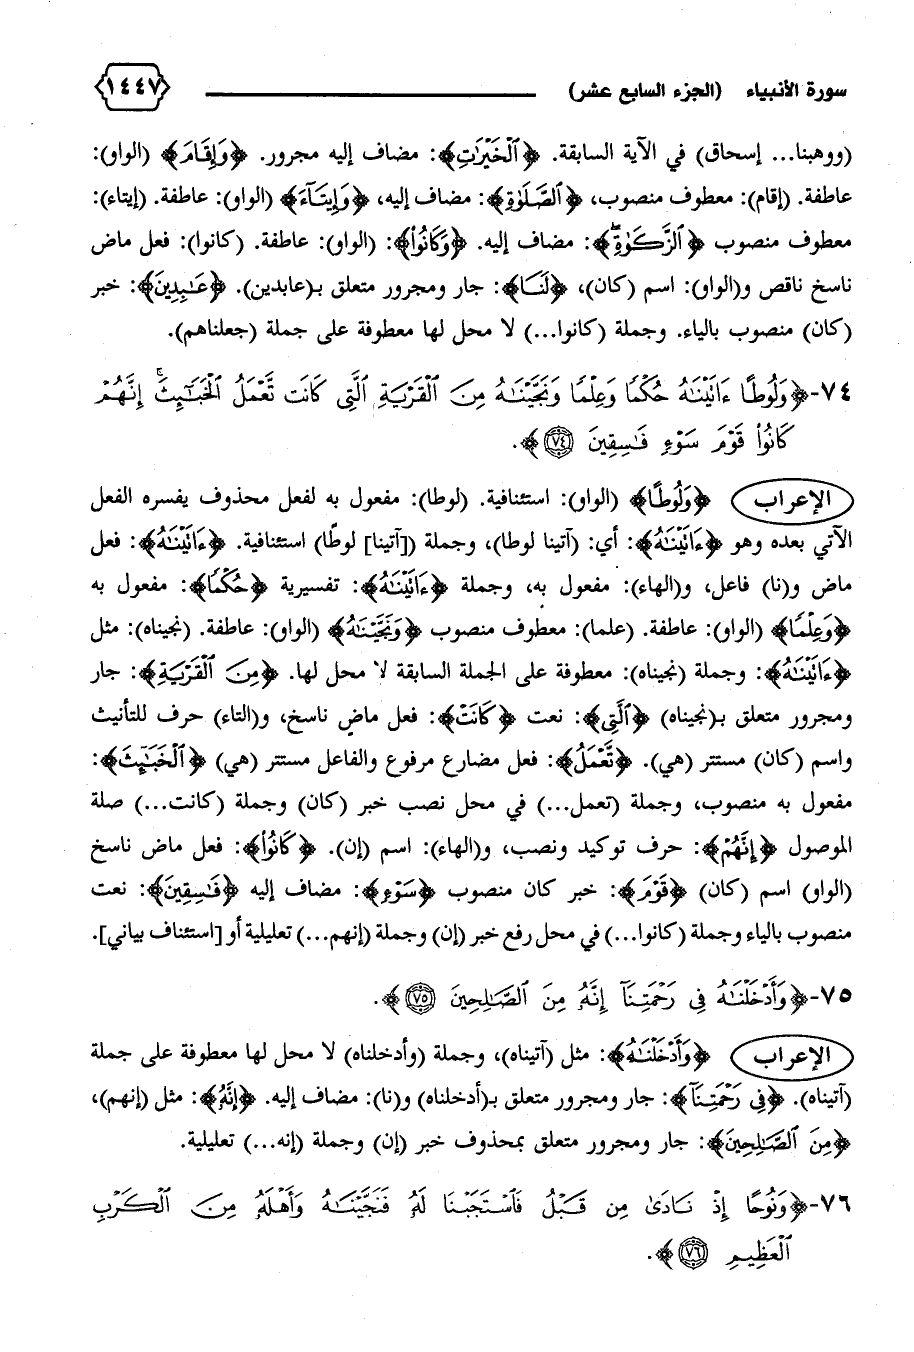 سورة الأنبياء (الجزء السابع عشر) ١٤٤٧
(ووهبنا... إسحاق) في الآية السابقة. ﴿ٱلْخَيْرَٰتِ﴾: مضاف إليه مجرور. ﴿وَإِقَامَ﴾ (الواو):
عاطفة. (إقام): معطوف منصوب، ﴿ٱلصَّلَوٰةِ﴾: مضاف إليه، ﴿وَإِيتَآءَ﴾ (الواو): عاطفة. (إيتاء):
معطوف منصوب ﴿ٱلزَّكَوٰةِۖ﴾: مضاف إليه. ﴿وَكَانُوا۟﴾: (الواو): عاطفة. (كانوا): فعل ماض
ناسخ ناقص و(الواو): اسم (كان)، ﴿لَنَا﴾: جار ومجرور متعلق بـ(عابدين). ﴿عَٰبِدِينَ﴾: خبر
(كان) منصوب بالياء. وجملة (كانوا...) لا محل لها معطوفة على جملة (جعلناهم).
٧٤-﴿وَلُوطًا ءَاتَيْنَٰهُ حُكْمًا وَعِلْمًا وَنَجَّيْنَٰهُ مِنَ ٱلْقَرْيَةِ ٱلَّتِى كَانَت تَّعْمَلُ ٱلْخَبَٰٓئِثَۚ إِنَّهُمْ
كَانُوا۟ قَوْمَ سَوْءٍ فَٰسِقِينَ ٧٤﴾.
الإعراب ﴿وَلُوطًا﴾ (الواو): استئنافية. (لوطا): مفعول به لفعل محذوف يفسره الفعل
الآتي بعده وهو ﴿ءَاتَيْنَٰهُ﴾: أي: (آتينا لوطا)، وجملة ([آتينا] لوطًا) استئنافية. ﴿ءَاتَيْنَٰهُ﴾: فعل
ماض و(نا) فاعل، و(الهاء): مفعول به، وجملة ﴿ءَاتَيْنَٰهُ﴾: تفسيرية ﴿حُكْمًا﴾: مفعول به
﴿وَعِلْمًا﴾ (الواو): عاطفة. (علما): معطوف منصوب ﴿وَنَجَّيْنَٰهُ﴾ (الواو): عاطفة. (نجيناه): مثل
﴿ءَاتَيْنَٰهُ﴾: وجملة (نجيناه): معطوفة على الجملة السابقة لا محل لها. ﴿مِنَ ٱلْقَرْيَةِ﴾: جار
ومجرور متعلق بـ(نجيناه) ﴿ٱلَّتِى﴾: نعت ﴿كَانَتْ﴾: فعل ماضٍ ناسخ، و(التاء) حرف للتأنيث
واسم (كان) مستتر (هي). ﴿تَّعْمَلُ﴾: فعل مضارع مرفوع والفاعل مستتر (هي) ﴿ٱلْخَبَٰٓئِثَ﴾:
مفعول به منصوب، وجملة (تعمل...) في محل نصب خبر (كان) وجملة (كانت...) صلة
الموصول ﴿إِنَّهُمْ﴾: حرف توكيد ونصب، و(الهاء): اسم (إن). ﴿كَانُوا۟﴾: فعل ماض ناسخ
(الواو) اسم (كان) ﴿قَوْمَ﴾: خبر كان منصوب ﴿سَوْءٍ﴾: مضاف إليه ﴿فَٰسِقِينَ﴾: نعت
منصوب بالياء وجملة (كانوا...) في محل رفع خبر (إن) وجملة (إنهم...) تعليلية أو [استئناف بياني].
٧٥-﴿وَأَدْخَلْنَٰهُ فِى رَحْمَتِنَآ إِنَّهُۥ مِنَ ٱلصَّٰلِحِينَ ٧٥﴾.
الإعراب ﴿وَأَدْخَلْنَٰهُ﴾: مثل (آتيناه)، وجملة (وأدخلناه) لا محل لها معطوفة على جملة
(آتيناه). ﴿فِى رَحْمَتِنَآ﴾: جار ومجرور متعلق بـ(أدخلناه) و(نا): مضاف إليه. ﴿إِنَّهُۥ﴾: مثل (إنهم)،
﴿مِنَ ٱلصَّٰلِحِينَ﴾: جار ومجرور متعلق بمحذوف خبر (إن) وجملة (إنه...) تعليلية.
٧٦-﴿وَنُوحًا إِذْ نَادَىٰ مِن قَبْلُ فَٱسْتَجَبْنَا لَهُۥ فَنَجَّيْنَٰهُ وَأَهْلَهُۥ مِنَ ٱلْكَرْبِ
ٱلْعَظِيمِ ٧٦﴾.